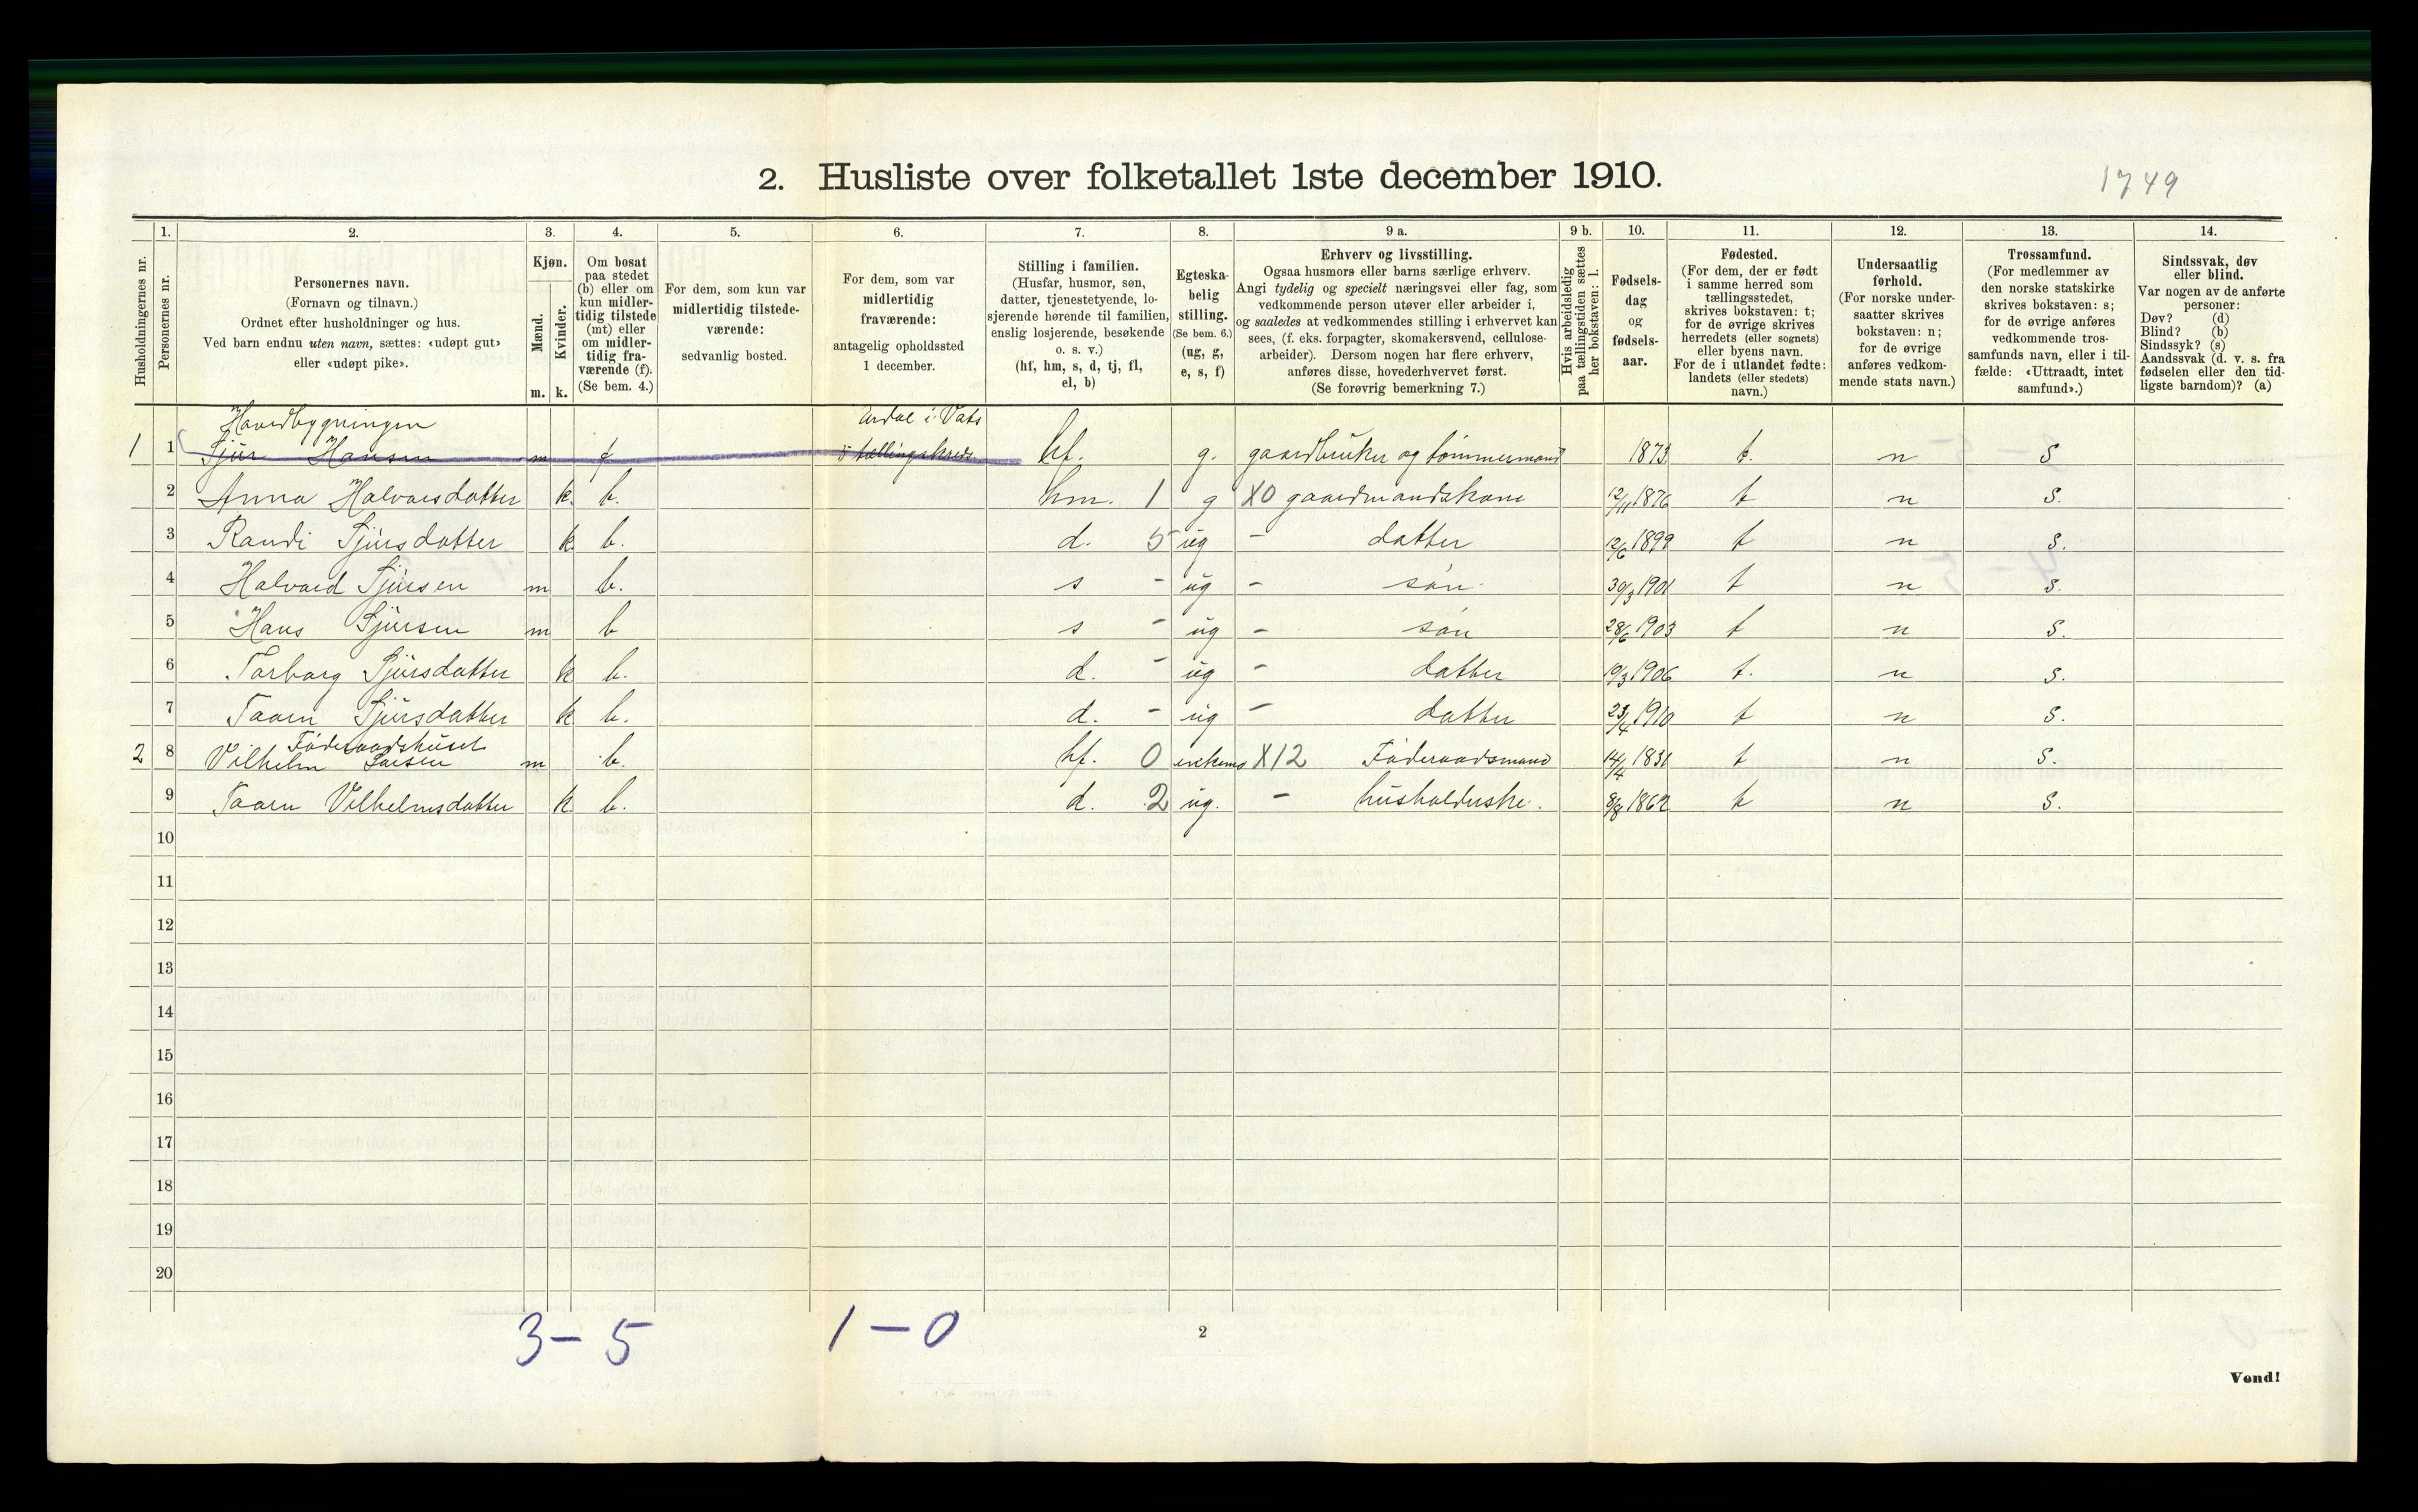 2. Husliste over folketallet 1ste december 1910.
1749
Husholdningernes nr.
1.
Personernes nr.
2.
Personernes navn.
(Fornavn og tilnavn.)
Ordnet efter husholdninger og hus.
Ved barn endnu uten navn, sættes: «udøpt gut»
eller «udøpt pike».
3.
Kjøn.
Mænd.
Kvinder.
m. k.
4.
Om bosat
paa stedet
(b) eller om
kun midler-
tidig tilstede
(mt) eller
om midler-
tidig fra-
værende (f).
(Se bem. 4.)
5.
For dem, som kun var
midlertidig tilstede-
værende:
sedvanlig bosted.
6.
For dem, som var
midlertidig
fraværende:
antagelig opholdssted
1 december.
7.
Stilling i familien.
(Husfar, husmor, søn,
datter, tjenestetyende, lo-
sjerende hørende til familien,
enslig losjerende, besøkende
o. s. v.)
(hf, hm, s, d, tj, fl,
el, b)
8.
Egteska-
belig
stilling.
(Se bem. 6.)
(ug, g,
e, s, f)
9 a.
Erhverv og livsstilling.
Ogsaa husmors eller barns særlige erhverv.
Angi tydelig og specielt næringsvei eller fag, som
vedkommende person utøver eller arbeider i,
og saaledes at vedkommendes stilling i erhvervet kan
sees, (f. eks. forpagter, skomakersvend, cellulose-
arbeider). Dersom nogen har flere erhverv,
anføres disse, hovederhvervet først.
(Se forøvrig bemerkning 7.)
9 b.
Hvis arbeidsledig
paa tællingstiden sættes
her bokstaven: l.
10.
Fødsels-
dag
og
fødsels-
aar.
11.
Fødested.
(For dem, der er født
i samme herred som
tællingsstedet,
skrives bokstaven: t;
for de øvrige skrives
herredets (eller sognets)
eller byens navn.
For de i utlandet fødte:
landets (eller stedets)
navn.)
12.
Undersaatlig
forhold.
(For norske under-
saatter skrives
bokstaven: n;
for de øvrige
anføres vedkom-
mende stats navn.)
13.
Trossamfund.
(For medlemmer av
den norske statskirke
skrives bokstaven: s;
for de øvrige anføres
vedkommende tros-
samfunds navn, eller i til-
fælde: «Uttraadt, intet
samfund».)
14.
Sindssvak, døv
eller blind.
Var nogen av de anførte
personer:
Døv? (d)
Blind? (b)
Sindssyk? (s)
Aandssvak (d. v. s. fra
fødselen eller den tid-
ligste barndom)? (a)
Hovedbygningen
i Vats
1 1 Sjur Hansen m f 5 tællingskreds hf. g. gaardbruker og tømmermand 1873 t. n S
2 Anna Halvorsdatter k. b. hm. 1 g X0 gaardmandskone 12/11 1876 t n S.
3 Randi Sjursdatter k b. d. 5 ug - datter 12/6 1899 t n S.
4 Halvard Sjursen m b. s - ug - søn 30/3 1901 t n S.
5 Hans Sjursen m b s - ug - søn 28/6 1903 t n S.
6 Torborg Sjursdatter k b. d. - ug - datter 10/3 1906 t. n S.
7 Taarn Sjursdatter k b. d. - ug - datter 23/4 1910 t n S.
Føderaadshuset
2 8 Vilhelm Larsen m b. hf. 0 enkem X12 Føderaadsmand 14/4 1831 t n S.
9 Taarn Vilhelmsdatter k b. d. 2 ug. - husholderske. 8/8 1862 t n S.
10
11
12
13
14
15
16
17
18
19
20
3 – 5 1 – 0
2
Vend!